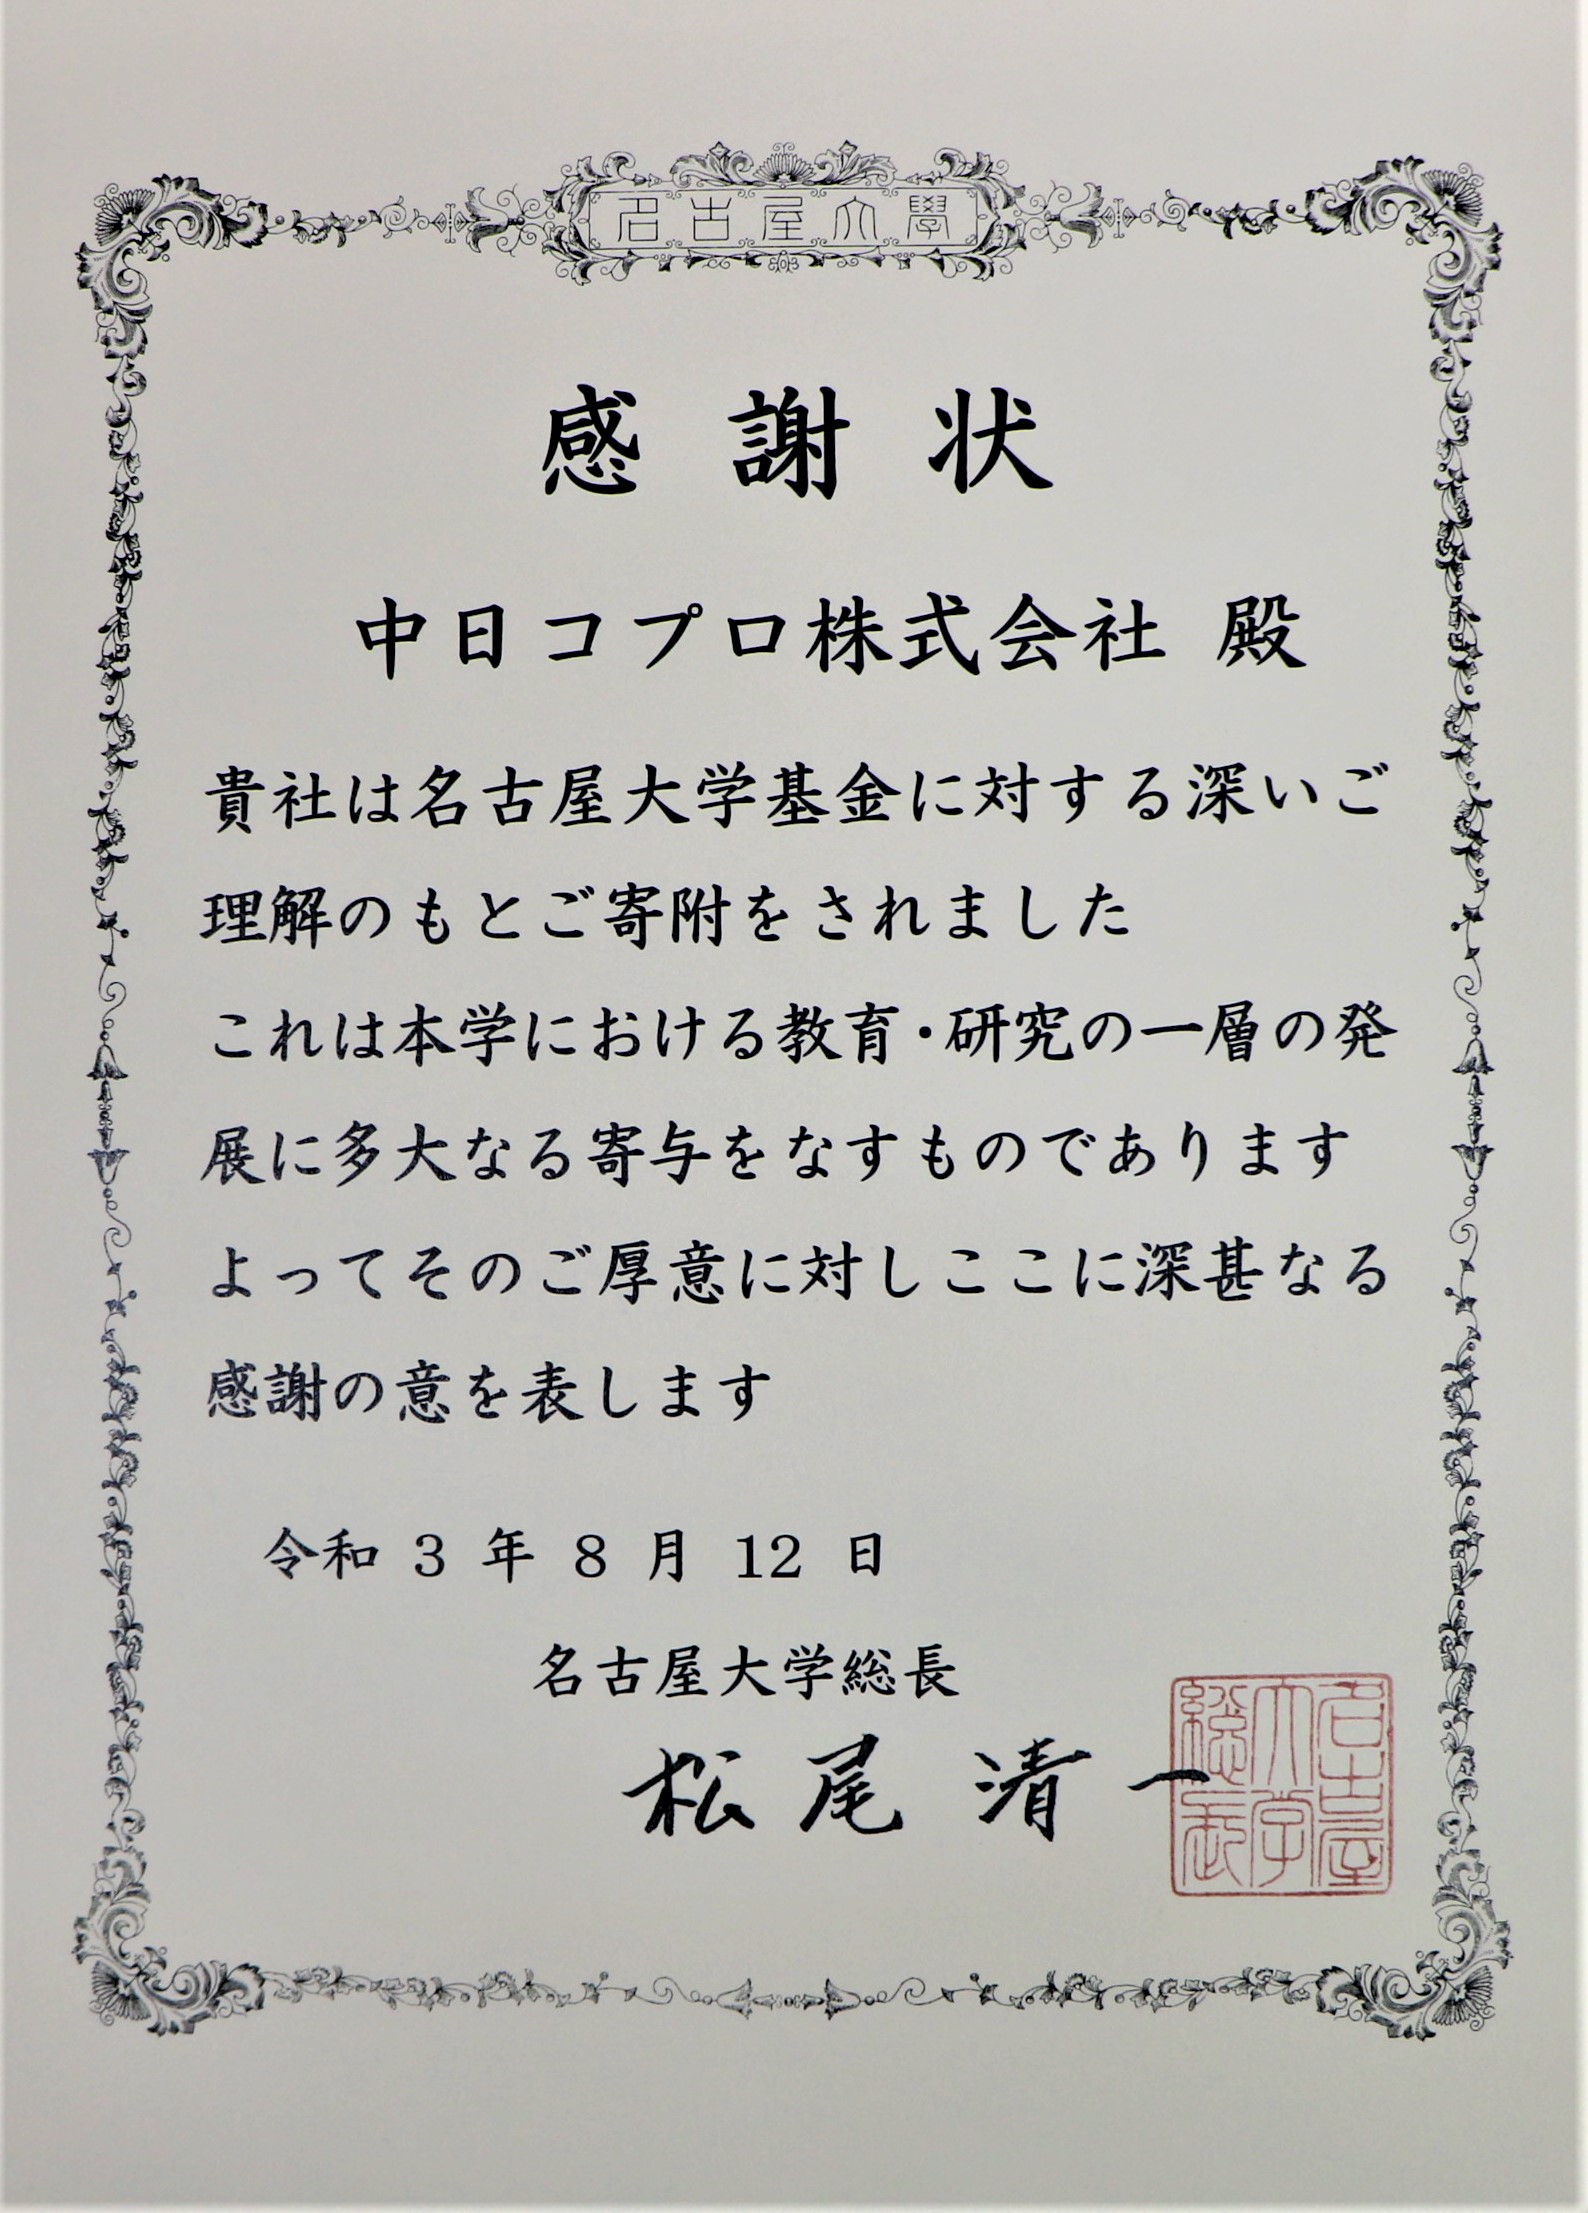 名古屋大學
感謝状
中日コプロ株式会社 殿
貴社は名古屋大学基金に対する深いご
理解のもとご寄附をされました
これは本学における教育・研究の一層の発
展に多大なる寄与をなすものであります
よってそのご厚意に対しここに深甚なる
感謝の意を表します
令和 3 年 8 月 12 日
名古屋大学総長
松尾清一
名古屋
大学
総長